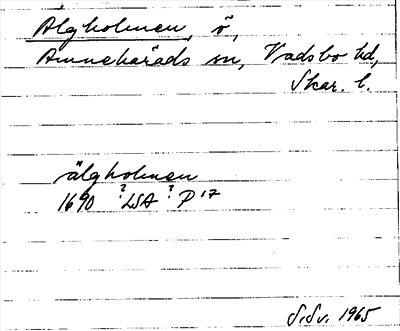 Älgholmen, ö,
Amnehärads sn, Vadsbo hd,
Skar. l.
älgholmen
1690 ? LSA ? P 17
S.Sv. 1965